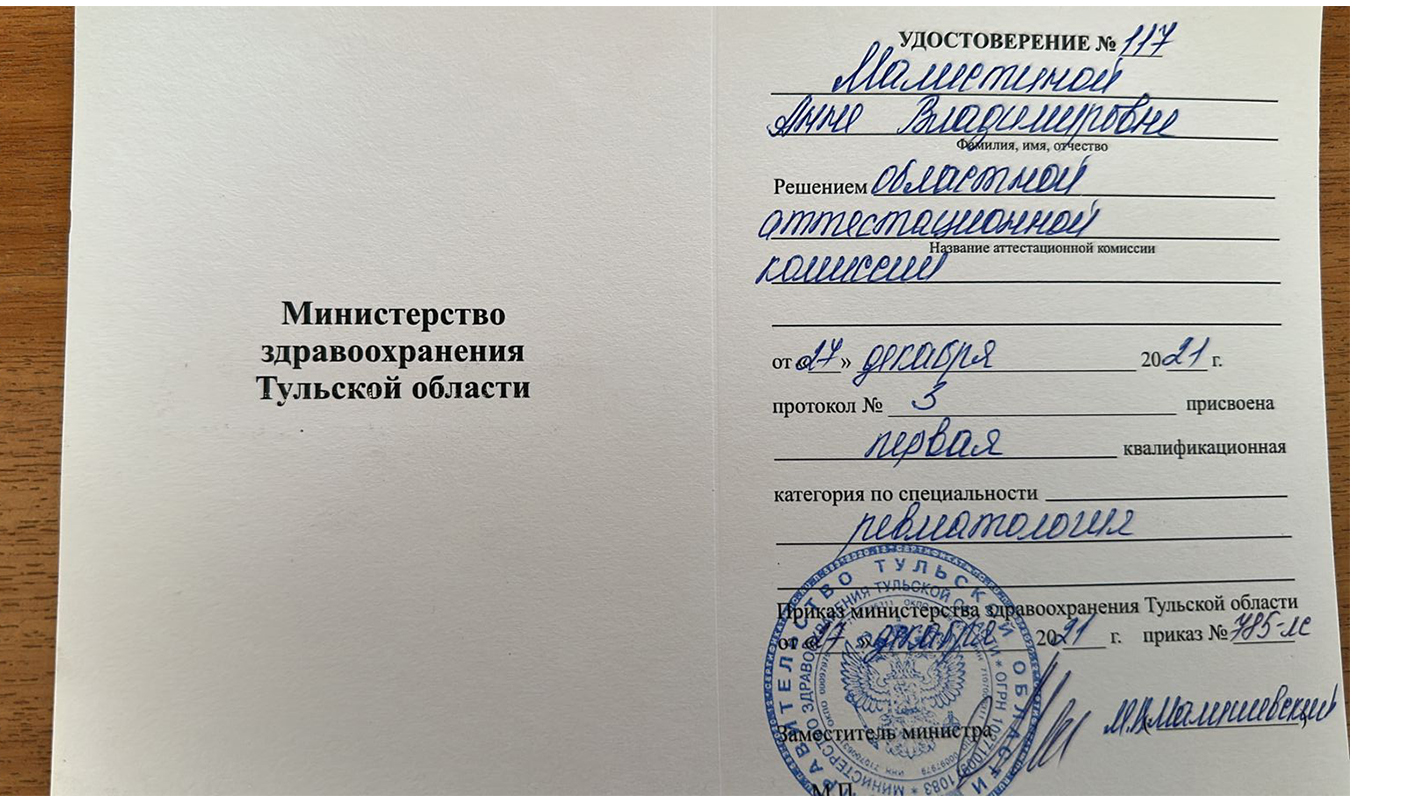 Министерство
здравоохранения
Тульской области
УДОСТОВЕРЕНИЕ № 117
Мамистиной
Анне Владимировне
Фамилия, имя, отчество
Решением областной
аттестационной
Название аттестационной комиссии
комиссии
от «27» декабря 2021 г.
протокол № 3 присвоена
первая квалификационная
категория по специальности
ревматология
Приказ министерства здравоохранения Тульской области
от «27» декабря 2021 г. приказ № 785-лс
Заместитель министра
М.П.